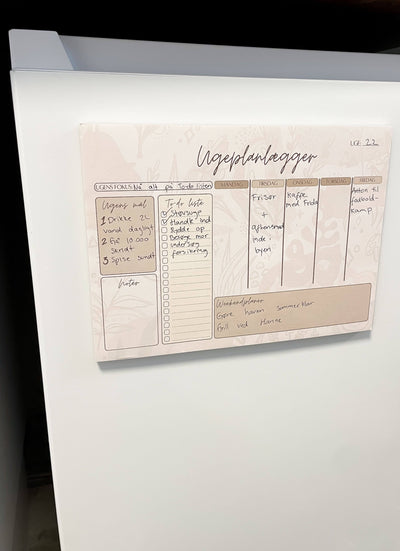 Ugeplanlægger
UGE: 22
UGENS FOKUS Nå alt på To-do listen
MANDAG
TIRSDAG
ONSDAG
TORSDAG
FREDAG
Ugens mål
1 Drikke 2L
vand dagligt
2 Gå 10.000
skridt
3 Spise sundt
Noter
To do liste
Støvsuge
Handle ind
Rydde op
Besøge mor
Undersøg
forsikring
Frisør
+
aftensmad
inde i
byen
Kaffe
med Frida
Anton til
fodbold-
kamp
Weekendplaner
Gøre haven sommerklar
Grill ved Hanne